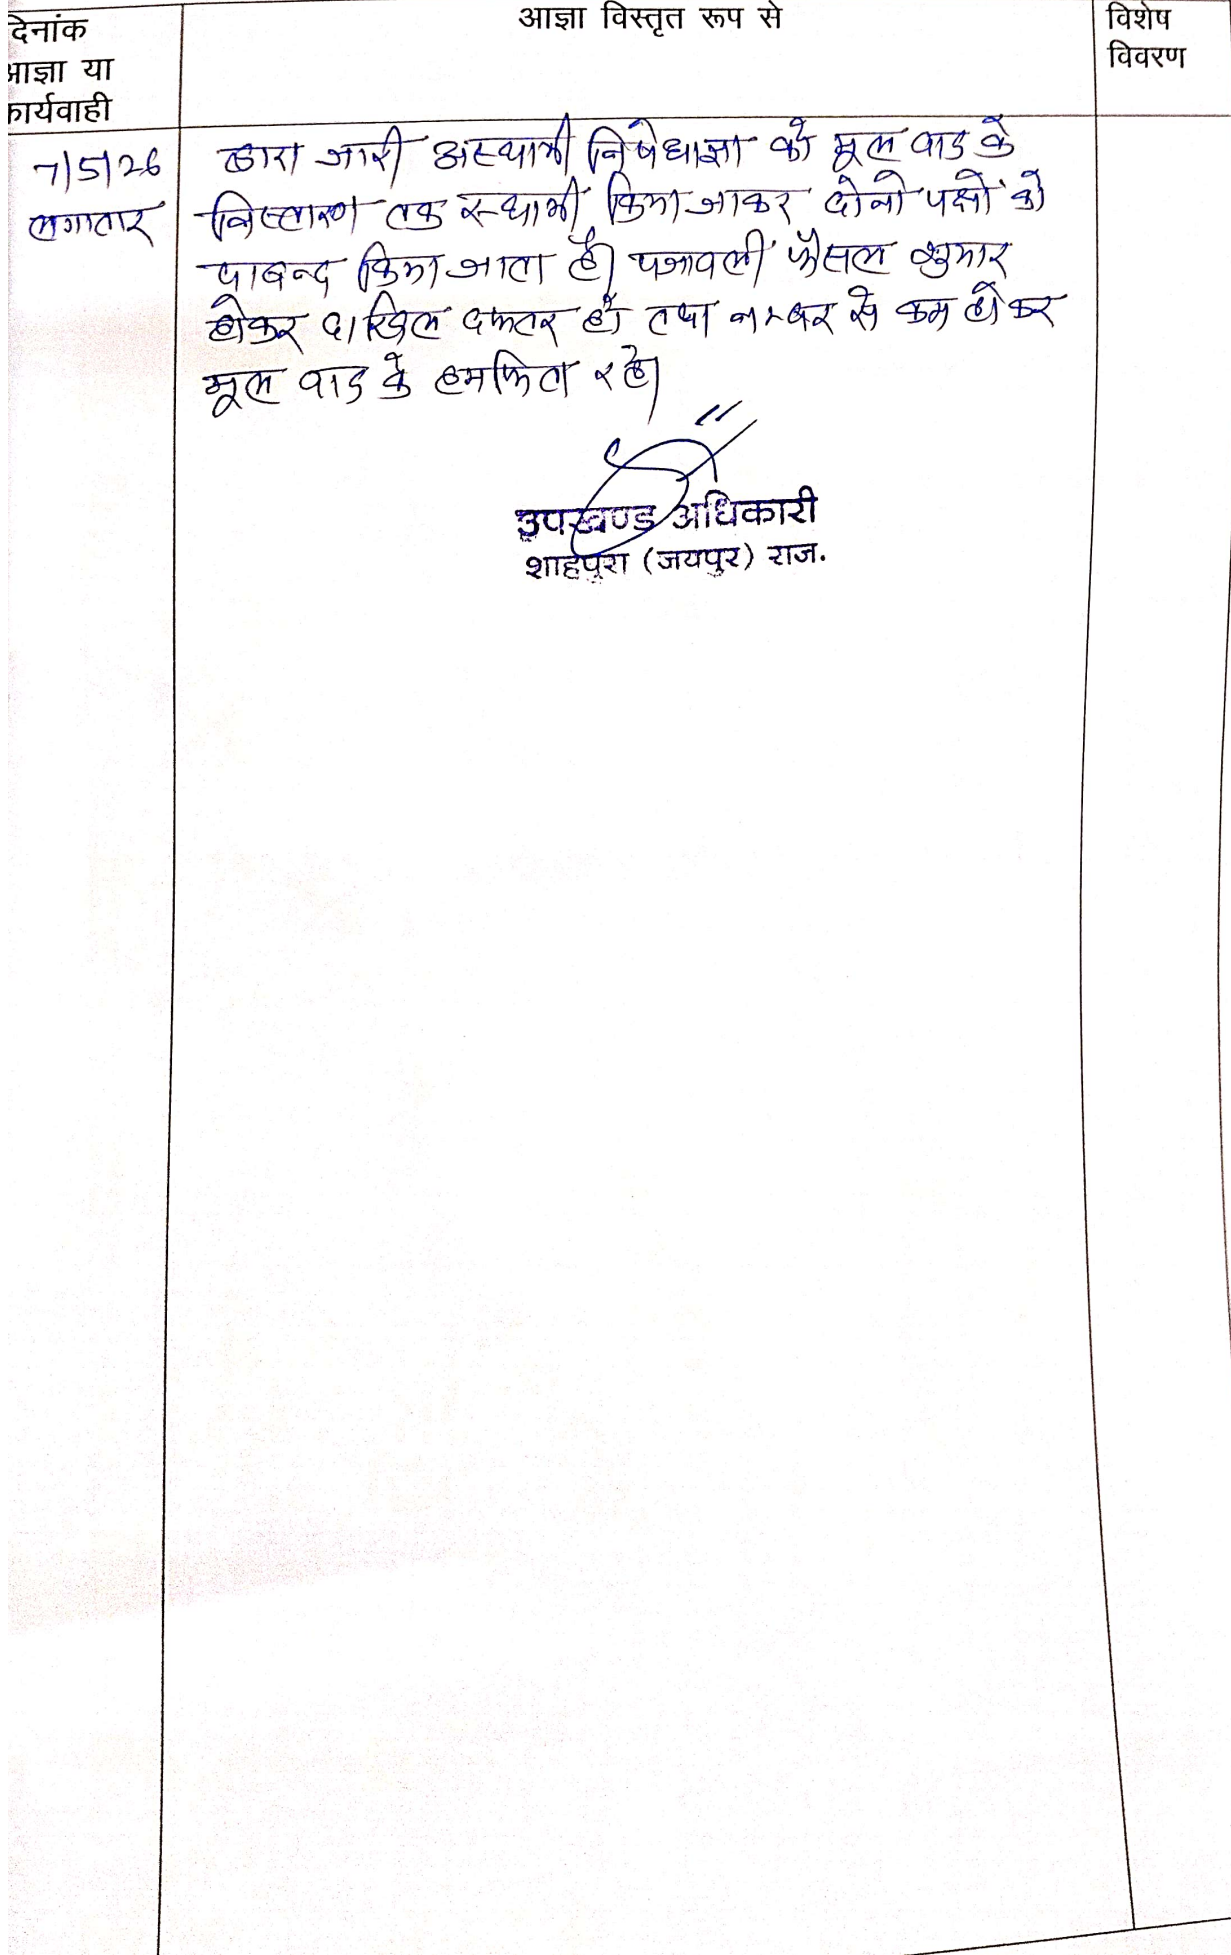 देनांक
आज्ञा या
कार्यवाही
आज्ञा विस्तृत रूप से
विशेष
विवरण
7/5/26
लगातार
द्वारा जारी अस्थायी निषेधाज्ञा को मूल वाद के
निस्तारण तक स्थायी किया जाकर दोनो पक्षों को
पाबन्द किया जाता है। पत्रावली फैसल शुमार
होकर दाखिल दफ्तर हो तथा नम्बर से कम होकर
मूल वाद के हमफिता रहे।
उपखण्ड अधिकारी
शाहपुरा (जयपुर) राज.